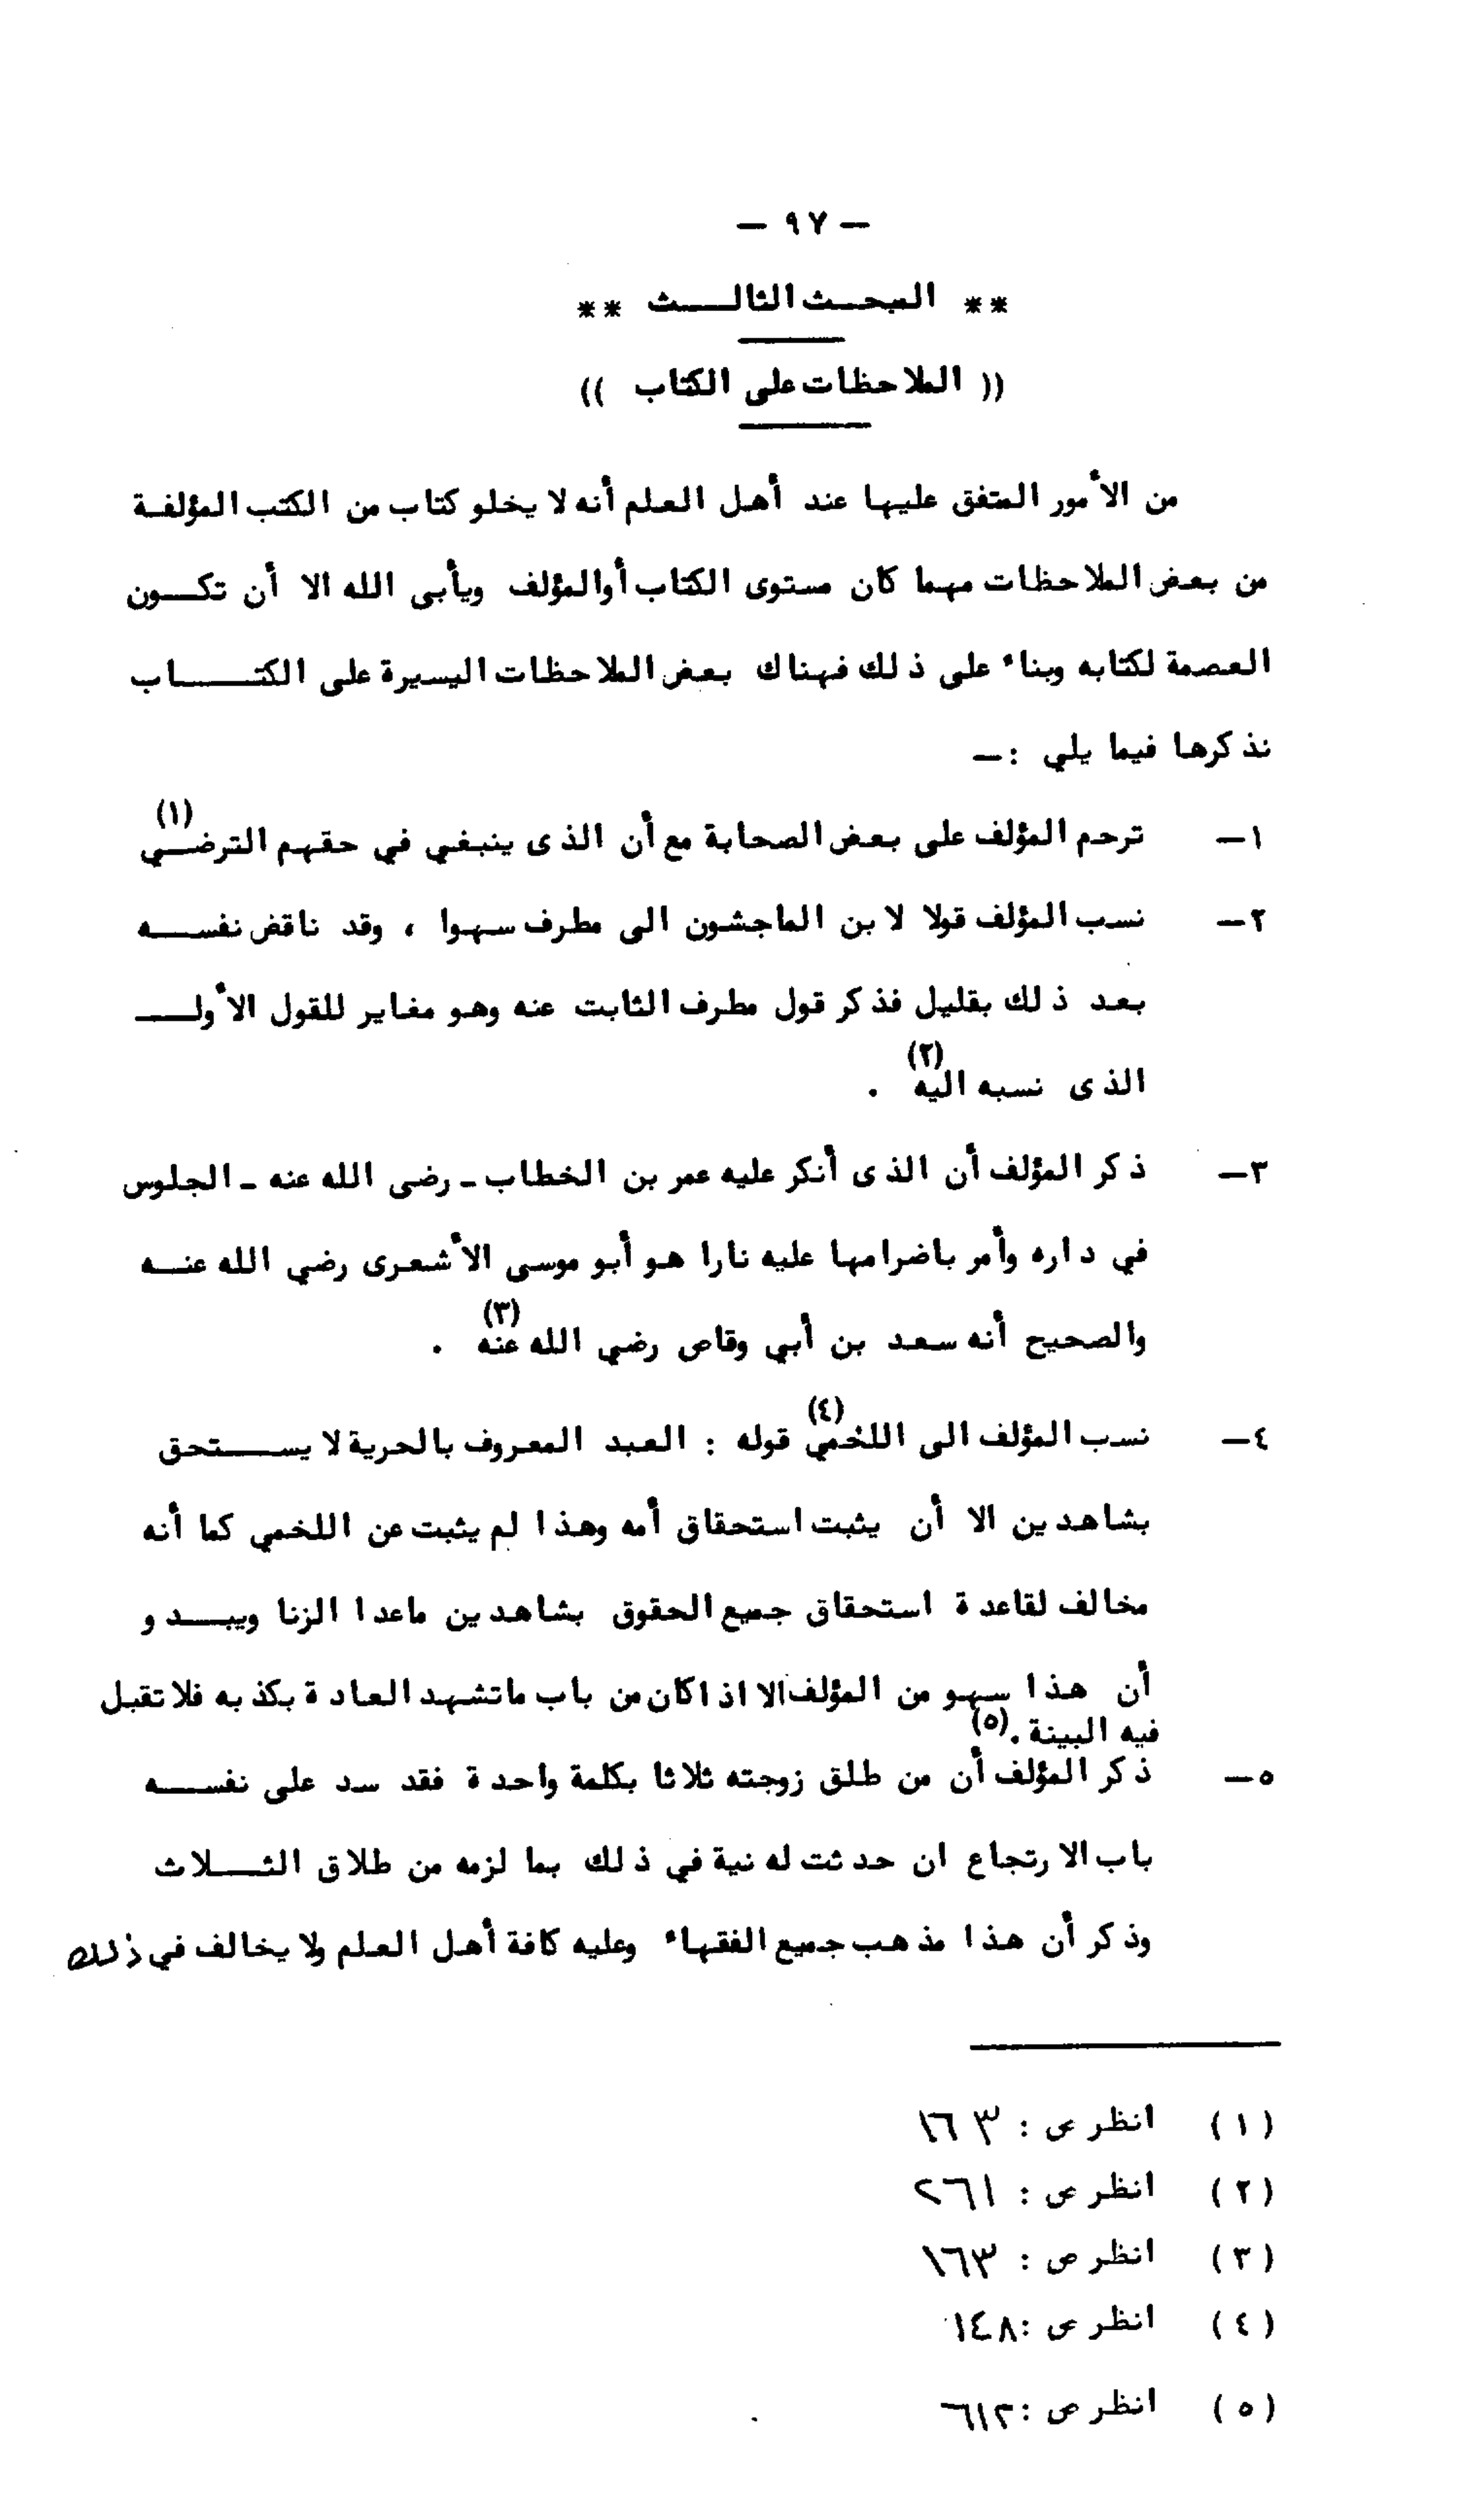 — ٩٧ —
** المبحث الثالث **
(( الملاحظات على الكتاب ))
من الأمور المتفق عليها عند أهل العلم أنه لا يخلو كتاب من الكتب المؤلفة
من بعض الملاحظات مهما كان مستوى الكتاب أوالمؤلف ويأبى الله الا أن تكون
العصمة لكتابه وبناء على ذلك فهناك بعض الملاحظات اليسيرة على الكتاب
نذكرها فيما يلي :—
١— ترحم المؤلف على بعض الصحابة مع أن الذى ينبغي في حقهم الترضي (١)
٢— نسب المؤلف قولا لابن الماجشون الى مطرف سهوا ، وقد ناقض نفسه
بعد ذلك بقليل فذكر قول مطرف الثابت عنه وهو مغاير للقول الأول
الذى نسبه اليه (٢) .
٣— ذكر المؤلف أن الذى أنكر عليه عمر بن الخطاب - رضى الله عنه - الجلوس
في داره وأمر باضرامها عليه نارا هو أبو موسى الأشعرى رضي الله عنه
والصحيح أنه سعد بن أبي وقاص رضي الله عنه (٣) .
٤— نسب المؤلف الى اللخمي (٤) قوله : العبد المعروف بالحرية لا يستحق
بشاهدين الا أن يثبت استحقاق أمه وهذا لم يثبت عن اللخمي كما أنه
مخالف لقاعدة استحقاق جميع الحقوق بشاهدين ماعدا الزنا ويبدو
أن هذا سهو من المؤلف الا اذا كان من باب ماتشهد العادة بكذبه فلا تقبل
فيه البينة . (٥)
٥— ذكر المؤلف أن من طلق زوجته ثلاثا بكلمة واحدة فقد سد على نفسه
باب الارتجاع ان حدثت له نية في ذلك بما لزمه من طلاق الثلاث
وذكر أن هذا مذهب جميع الفقهاء وعليه كافة أهل العلم ولا يخالف في ذلك
(١) انظر ص : ١٦٣
(٢) انظر ص : ٢٦١
(٣) انظر ص : ١٦٣
(٤) انظر ص :١٤٨
(٥) انظر ص :٦١٢